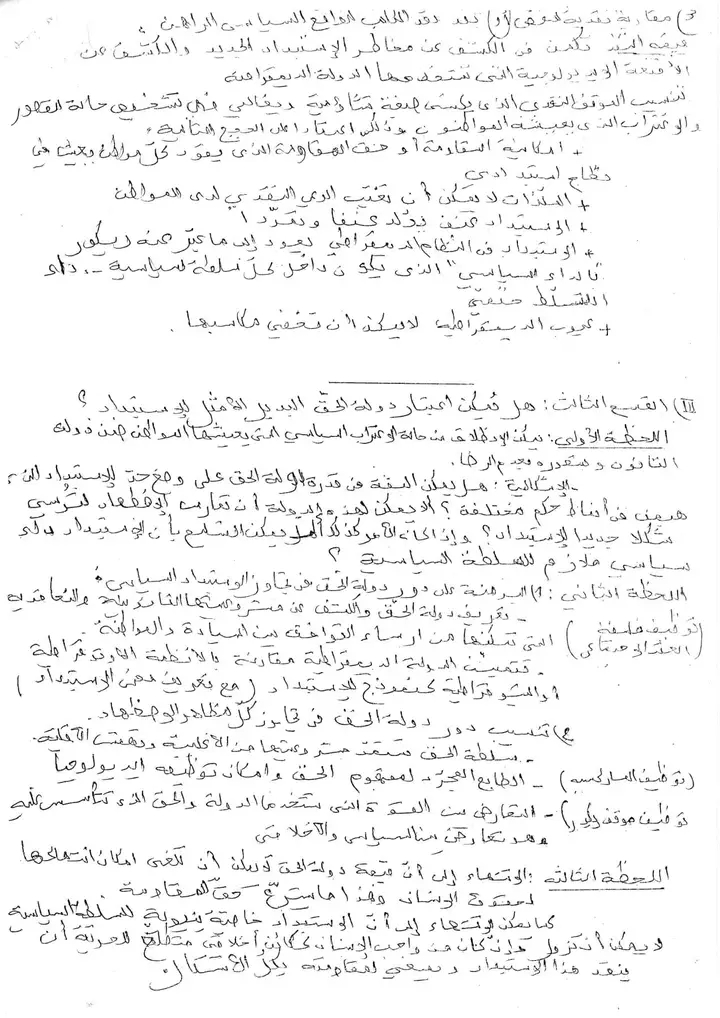 3) مقارنة نقدية تموضع (أو) نقد الكاتب الواقع السياسي الراهن:
قيمة النص تكمن في الكشف عن مخاطر الإستبداد الجديد والكشف عن
الأقنعة الإيديولوجية التي تستخدمها الدولة الديمقراطية
تنسيب الموقف النقدي الذي يكتسي صبغة تشاؤمية ويغالي في تشخيص حالة القصور
والإغتراب الذي يعيشه المواطنون وذلك اعتمادا على الحجج التالية:
+ امكانية المقاومة أو حق المقاومة الذي يعود لكل مواطن يعيش في
نظام استبدادي
+ الملذات لا يمكن أن تغيب الوعي النقدي لدى المواطن
+ الإستبداد عنف يولد عنفا وتمردا
+ الإستبداد في النظام الديمقراطي يعود إلى ما عبر عنه ريكور
"بالداء السياسي" الذي يكون داخل كل سلطة سياسية - داء
التسلط حتمي
+ عيوب الديمقراطية لا يمكن أن تخفي مكاسبها.
III) القسم الثالث: هل يمكن اعتبار دولة الحق البديل الأمثل للإستبداد؟
اللحظة الأولى: يمكن الإنطلاق من حالة الإغتراب السياسي التي يعيشها المواطن ضمن دولة
القانون وشعوره بعدم الرضا.
الإشكالية: هل يمكن الثقة في قدرة دولة الحق على وضع حد للإستبداد الذي
هيمن في أنماط حكم مختلفة؟ ألا يمكن لهذه الدولة أن تمارس الإضطهاد لترسي
شكلا جديدا للإستبداد؟ وإذا كان الأمر كذلك ألا يمكن التسليم بأن الإستبداد داء
سياسي ملازم للسلطة السياسية؟
اللحظة الثاني: 1) البرهنة على دور دولة الحق في تجاوز الإستبداد السياسي:
(توظيف فلسفة العقد الإجتماعي) - تعريف دولة الحق والكشف عن مشروعيتها القانونية والتعاقدية
التي تمكنها من ارساء التوافق بين السيادة والمواطنة.
- تتميز الدولة الديمقراطية مقارنة بالأنظمة الأوتوقراطية
أو التيوقراطية كنموذج للإستبداد (مع تعريف معنى الإستبداد)
2) تنسيب دور دولة الحق في تجاوز كل مظاهر الإضطهاد.
- سلطة الحق تستمد مشروعيتها من الأغلبية وتهمش الأقلية.
(توظيف الماركسية) - الطابع المجرد لمفهوم الحق وامكان توظيفه ايديولوجيا
(توظيف موقف ريكور) - التعارض بين القوة التي تستخدمها الدولة والحق الذي تتأسس عليه
وهو تعارض بين السياسي والأخلاقي
اللحظة الثالثة: الإنتهاء إلى أن قيمة دولة الحق لا يمكن أن تلغي امكان انتهاكها
لحقوق الإنسان وهذا ما يشرع حق المقاومة.
كما يمكن الإنتهاء إلى أن الإستبداد خاصية بنيوية للسلطة السياسية
لا يمكن أن تزول وإن كان من واجب الإنسان ككائن أخلاقي متطلع للحرية أن
ينقد هذا الإستبداد ويسعى لمقاومته بكل الأشكال